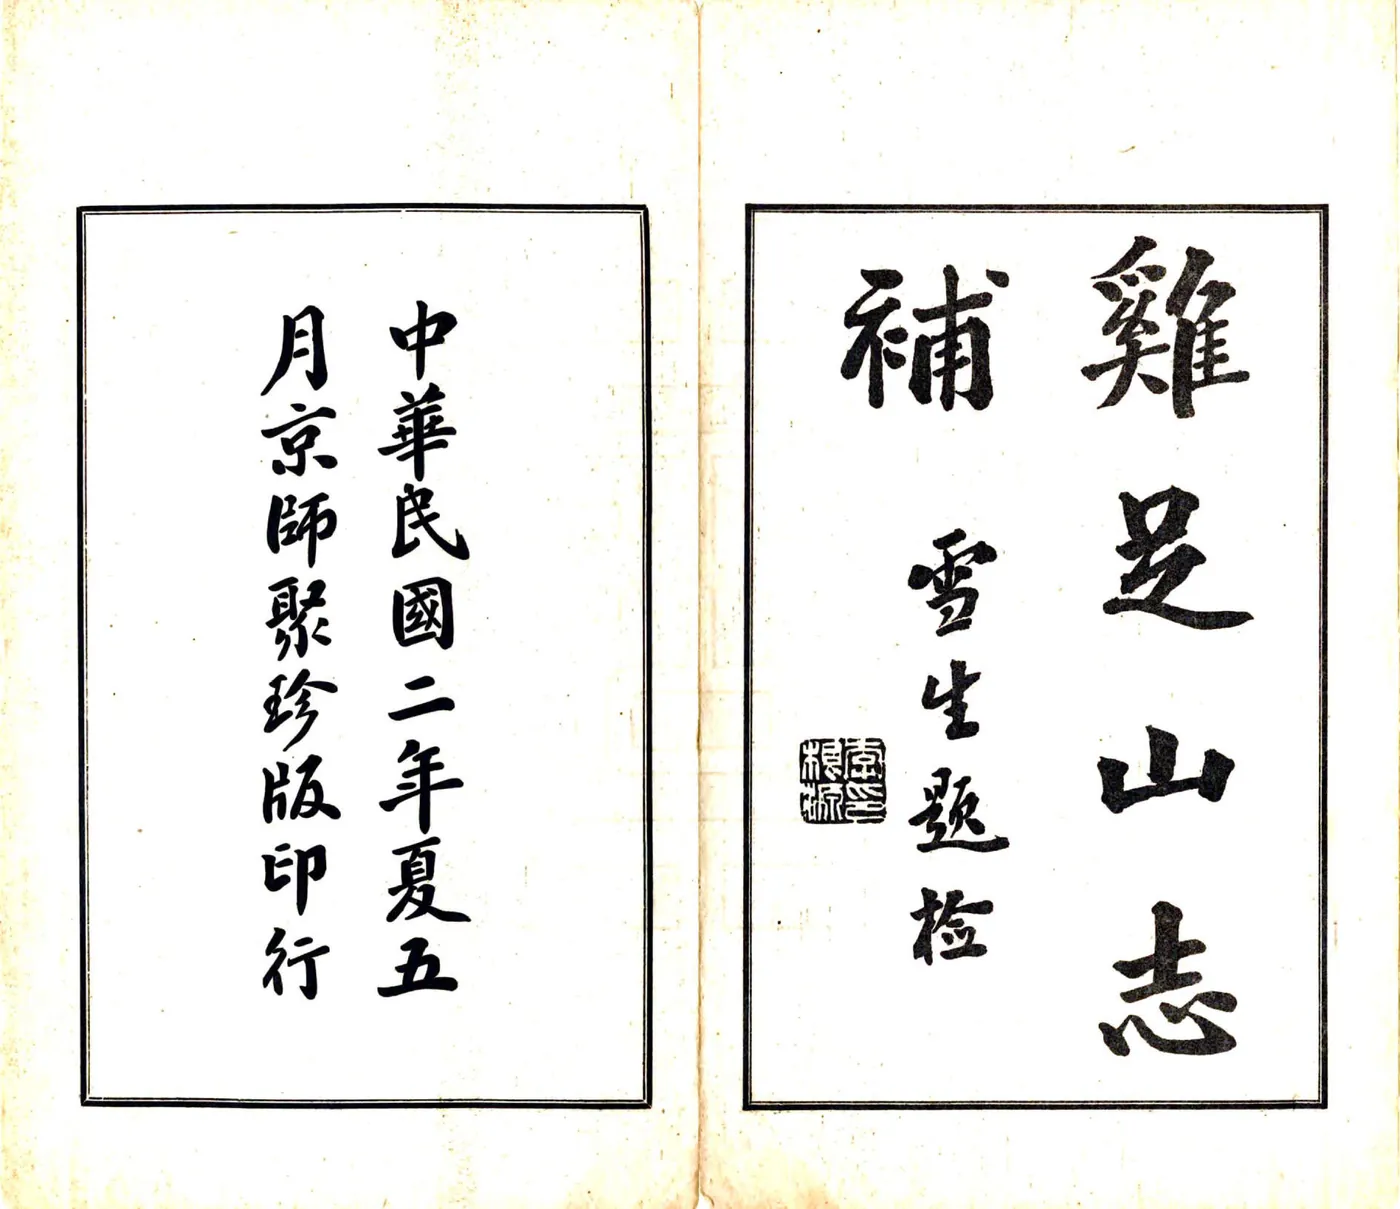 雞足山志
補
雪生題检
李印
根源
中華民國二年夏五
月京師聚珍版印行